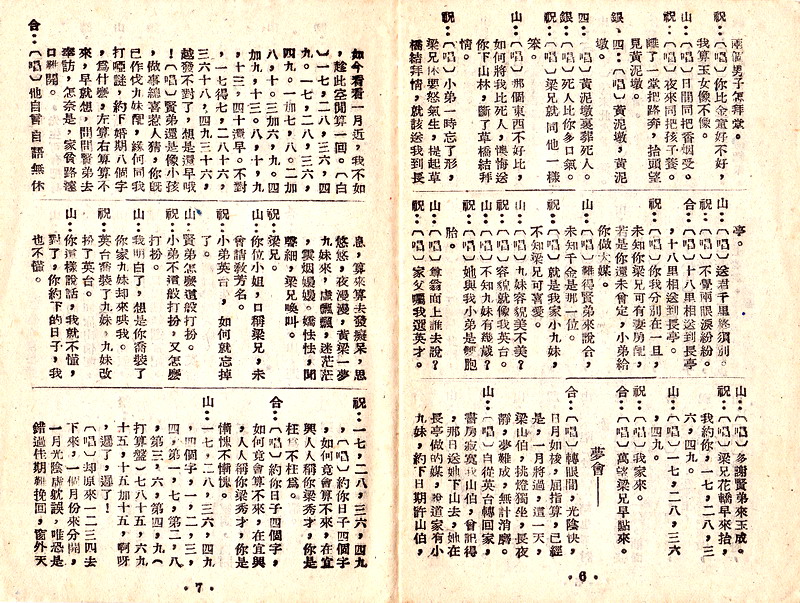 兩個男子怎拜堂。
祝：〔唱〕你比金童好不好，
我算玉女像不像。
山：〔唱〕日間同把香烟受。
祝：〔唱〕夜來同把孩子養。
離了一堂把路奔，抬頭望
見黃泥墩。
銀、四：〔唱〕黃泥墩，黃泥
墩。
四：〔唱〕黃泥墩裏葬死人。
銀：〔唱〕死人比你多口氣。
祝：〔唱〕梁兄就同他一樣
笨。
山：〔唱〕那個東西不好比，
如何將我比死人，懊悔送
你下山林，斷了草橋結拜
情。
祝：〔唱〕小弟一時忘了形，
梁兄休要怒氣生，提起草
橋結拜情，就該送我到長
亭。
山：〔唱〕送君千里終須別。
祝：〔唱〕不覺兩眼淚紛紛。
合：〔唱〕十八里相送到長亭
，十八里相送到長亭。
祝：〔唱〕你我分別在一旦，
未知你梁兄可有妻房配，
若是你還未曾定，小弟給
你做大媒。
山：〔唱〕難得賢弟來說合，
未知千金是那一位。
祝：〔唱〕就是我家小九妹，
不知梁兄可喜愛。
山：〔唱〕九妹容貌美不美？
祝：〔唱〕容貌就像我英台。
山：〔唱〕不知九妹有幾歲？
祝：〔唱〕她與我小弟是雙胞
胎。
山：〔唱〕尊翁面上誰去說？
祝：〔唱〕家父囑我選英才。
山：〔唱〕多謝賢弟來玉成。
祝：〔唱〕梁兄花轎早來抬，
我約你，一七，二八，三
六，四九。
山：〔唱〕一七，二八，三六
，四九。
祝：〔唱〕我家來。
合：〔唱〕萬望梁兄早點來。
夢會——
合：〔唱〕轉眼間，光陰快，
日月如梭，屈指算，已經
是，一月將過，這一天，
梁山伯，挑燈獨坐，長夜
靜，夢難成，無計消磨。
書房寂寞我山伯，曾記得
山：〔唱〕自從英台轉回家，
，那日送她下山去，她在
長亭做的媒，說道家有小
九妹，約下日期許山伯，
·6·
如今看看一月近，我不如
，趁此空閒算一回。〔白
〕一七，二八，三六，四
九。一七，二八，三六，
四九。一加七，八。二加
八，十。三加六，九。四
加九，十三。八，十，九
，十三，四十還早。不對
，一七得七，二八十六，
三六十八，四九三十六，
越發不對了，想是還早哦
！〔唱〕賢弟還是像小孩
，做事總喜惹人猜，你旣
已作伐九妹配，緣何同我
打啞謎，約下婚期八個字
，爲什麽，左算右算算不
來，早就想，間問賢弟去
奉訪，怎奈是，家貧路遠
口難開。
合：〔唱〕他自言自語無休
息，算來算去發癡呆，思
悠悠，夜漫漫，黃梁一夢
九妹來，虛飄飄，迷茫茫
，雲烟嬝嬝。嬌怯怯，聞
聲細，梁兄喚叫。
祝：梁兄。
山：你位小姐，口稱梁兄，未
曾請敎芳名。
祝：小弟英台，如何就忘掉
了。
山：賢弟怎麽這般打扮。
祝：小弟不這般打扮，又怎麽
打扮。
山：我明白了，想是你喬裝了
你家九妹却來哄我。
祝：英台喬裝了九妹，九妹改
扮了英台。
山：你這樣說話，我就不懂，
對了，你約下的日子，我
也不懂。
祝：一七，二八，三六，四九
，〔唱〕約你日子四個字
，如何竟會算不來，在宜
興人人稱你梁秀才，你是
枉爲不枉爲。
合：〔唱〕約你日子四個字，
如何竟會算不來，在宜興
，人人稱你梁秀才，你是
慚愧不慚愧。
山：一七，二八，三六，四九
，四個字，一，二，三，
四，第一，七，第二，八
，第三，六，第四，九〔
打算盤〕七八十五，六九
十五，十五加十五，啊呀
，遲了，遲了！
〔唱〕却原來一二三四去
下來，一個月份來分開，
一月光陰虛就誤，唯恐是
錯過佳期難挽回，窗外天
·7·